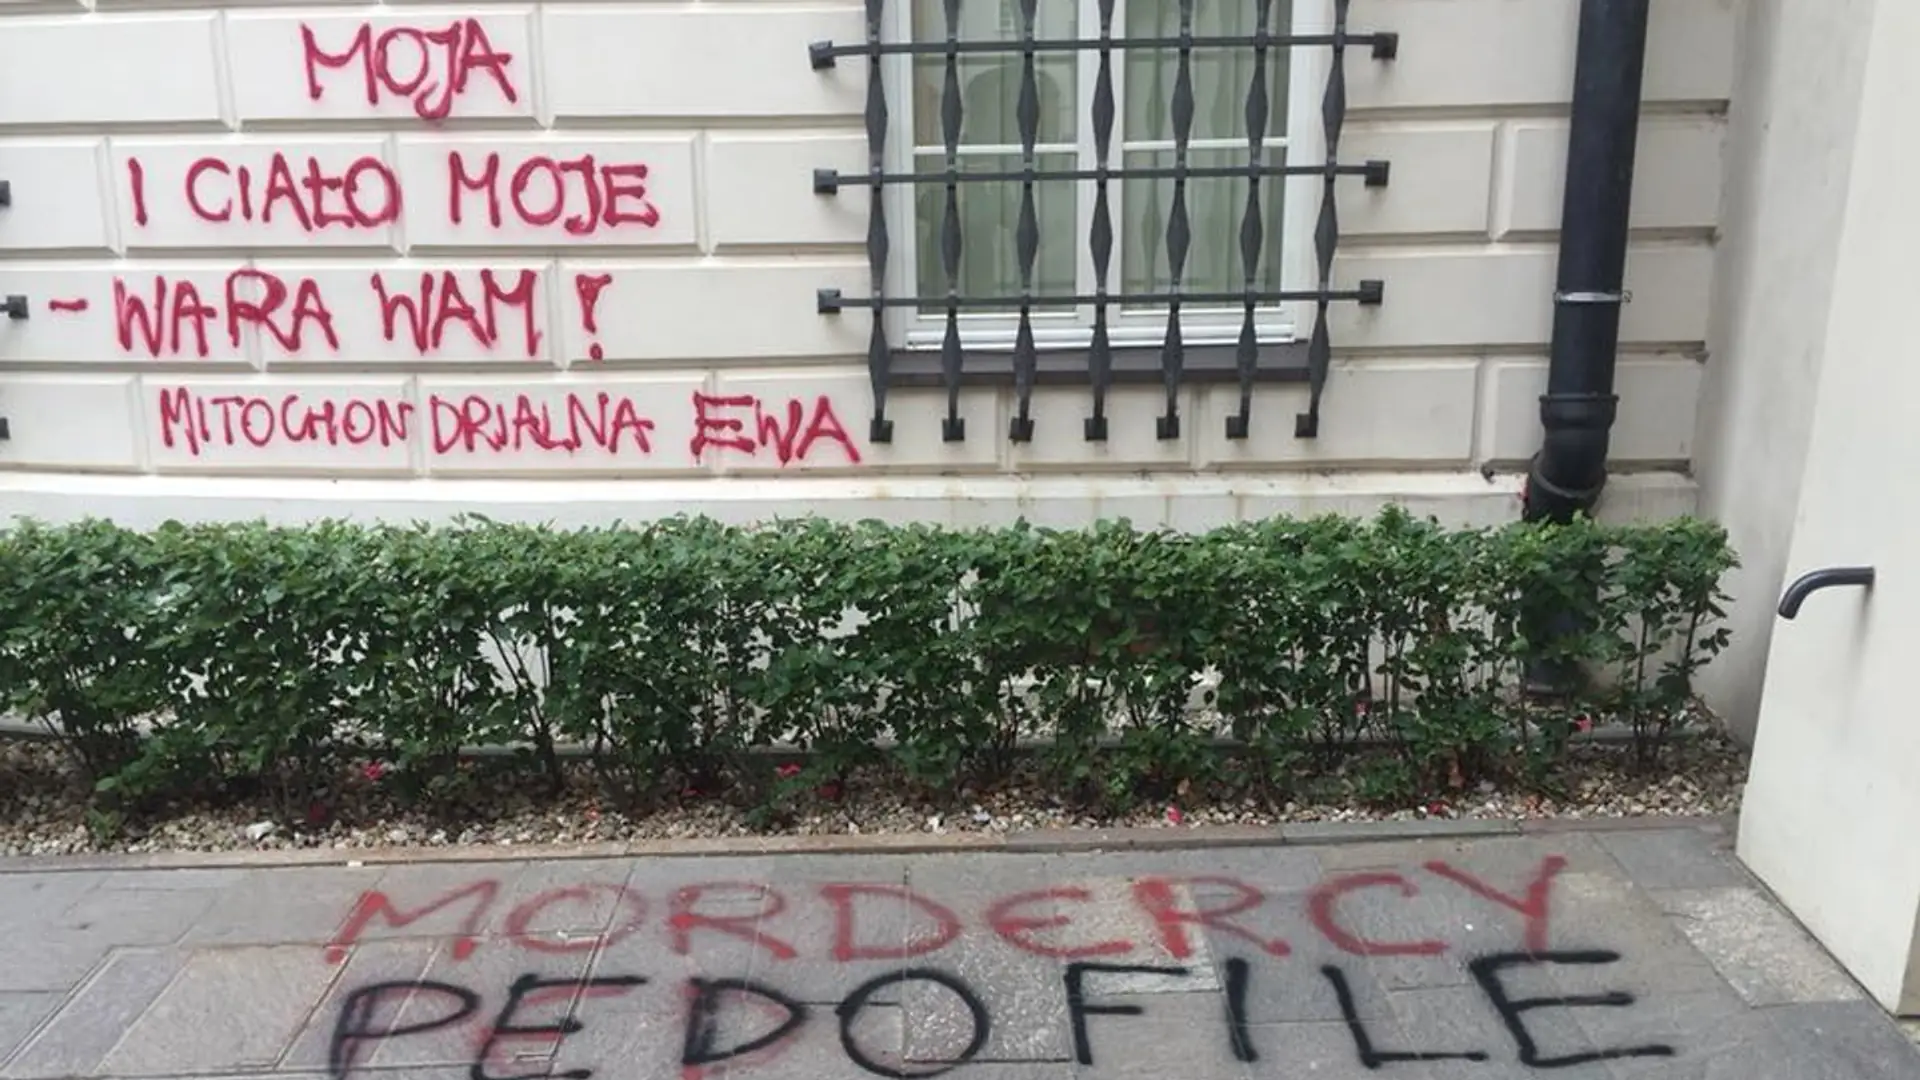 MOJA
I CIAŁO MOJE
- WARA WAM!
MITOCHONDRIALNA EWA
MORDERCY
PEDOFILE